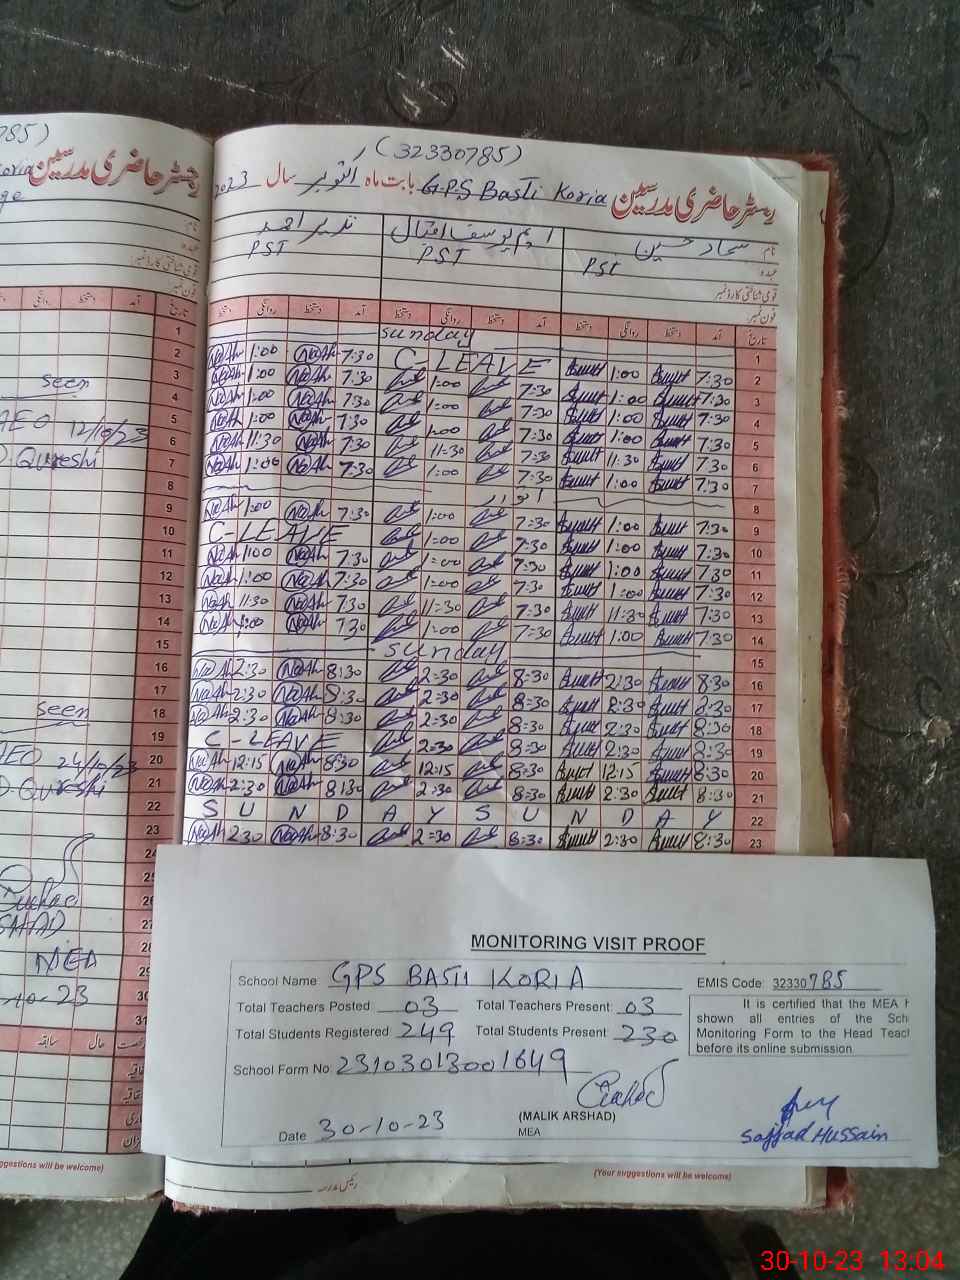 785)
(32330785)
رجسٹر حاضری مدرسین GPS Basti Koria بابت ماہ اکتوبر سال 2023
رجسٹر حاضری مدرسین
نام سجاد حسین ایم یوسف اقبال نذیر احمد
عہدہ PST PST PST
قومی شناختی کارڈ نمبر
فون نمبر
تاریخ آمد دستخط روانگی دستخط آمد دستخط روانگی دستخط آمد دستخط روانگی دستخط
1 Sunday 1
2 1:00 7:30 C LEAVE 1:00 7:30 2
3 1:00 7:30 1:00 7:30 1:00 7:30 3
4 1:00 7:30 1:00 7:30 1:00 7:30 4
5 1:00 7:30 1:00 7:30 1:00 7:30 5
6 11:30 7:30 11:30 7:30 11:30 7:30 6
7 1:00 7:30 1:00 7:30 1:00 7:30 7
8 اتوار 8
9 1:00 7:30 1:00 7:30 1:00 7:30 9
10 C-LEAVE 1:00 7:30 1:00 7:30 10
11 1:00 7:30 1:00 7:30 1:00 7:30 11
12 1:00 7:30 1:00 7:30 1:00 7:30 12
13 11:30 7:30 11:30 7:30 11:30 7:30 13
14 1:00 7:30 1:00 7:30 1:00 7:30 14
15 Sunday 15
16 2:30 8:30 2:30 8:30 2:30 8:30 16
17 2:30 8:30 2:30 8:30 2:30 8:30 17
18 2:30 8:30 2:30 8:30 2:30 8:30 18
19 C-LEAVE 2:30 8:30 2:30 8:30 19
20 12:15 8:30 12:15 8:30 12:15 8:30 20
21 2:30 8:30 2:30 8:30 2:30 8:30 21
22 S U N D A Y S U N D A Y 22
23 2:30 8:30 2:30 8:30 2:30 8:30 23
seen
AEO 12/10/23
Qureshi
seen
AEO 24/10/23
Qureshi
MEA
10-23
MONITORING VISIT PROOF
School Name: GPS BASTI KORIA EMIS Code: 32330785
Total Teachers Posted: 03 Total Teachers Present: 03
Total Students Registered: 249 Total Students Present: 230
School Form No: 23103013001649
It is certified that the MEA
shown all entries of the
Monitoring Form to the Head
before its online submission
(MALIK ARSHAD)
MEA
Date 30-10-23
Sajjad Hussain
(Your suggestions will be welcome)
uggestions will be welcome)
رئیس مدرسہ
30-10-23 13:04